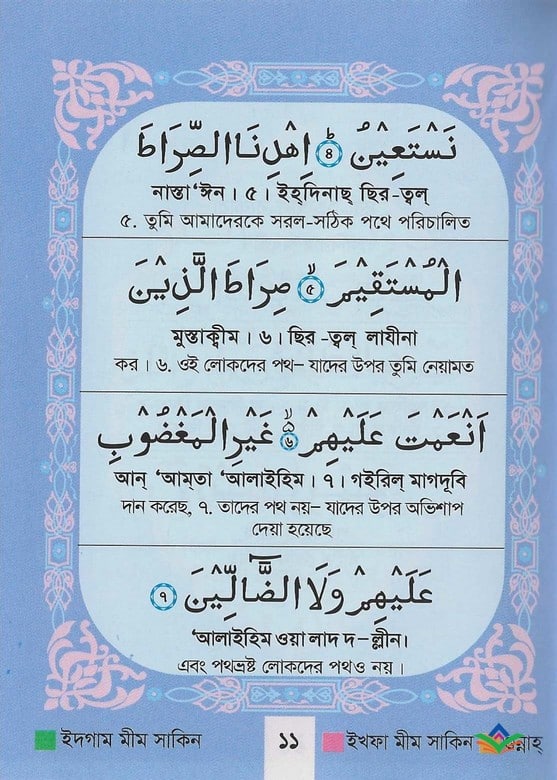 نَسْتَعِيْنُ ؕ ۴ اِهْدِنَا الصِّرَاطَ
নাস্তা‘ঈন। ৫। ইহ্‌দিনাছ্ ছির-ত্বল্
৫. তুমি আমাদেরকে সরল-সঠিক পথে পরিচালিত
الْمُسْتَقِيْمَ ۙ ۵ صِرَاطَ الَّذِيْنَ
মুস্তাক্বীম। ৬। ছির-ত্বল্ লাযীনা
কর। ৬. ওই লোকদের পথ– যাদের উপর তুমি নেয়ামত
اَنْعَمْتَ عَلَيْهِمْ ۙ ۶ غَيْرِ الْمَغْضُوْبِ
আন্ ‘আম্‌তা ‘আলাইহিম। ৭। গইরিল্ মাগদূবি
দান করেছ, ৭. তাদের পথ নয়– যাদের উপর অভিশাপ
দেয়া হয়েছে
عَلَيْهِمْ وَلَا الضَّآلِّيْنَ ۷
‘আলাইহিম ওয়া লাদ দ–ল্লীন।
এবং পথভ্রষ্ট লোকদের পথও নয়।
ইদগাম মীম সাকিন ১১ ইখফা মীম সাকিন